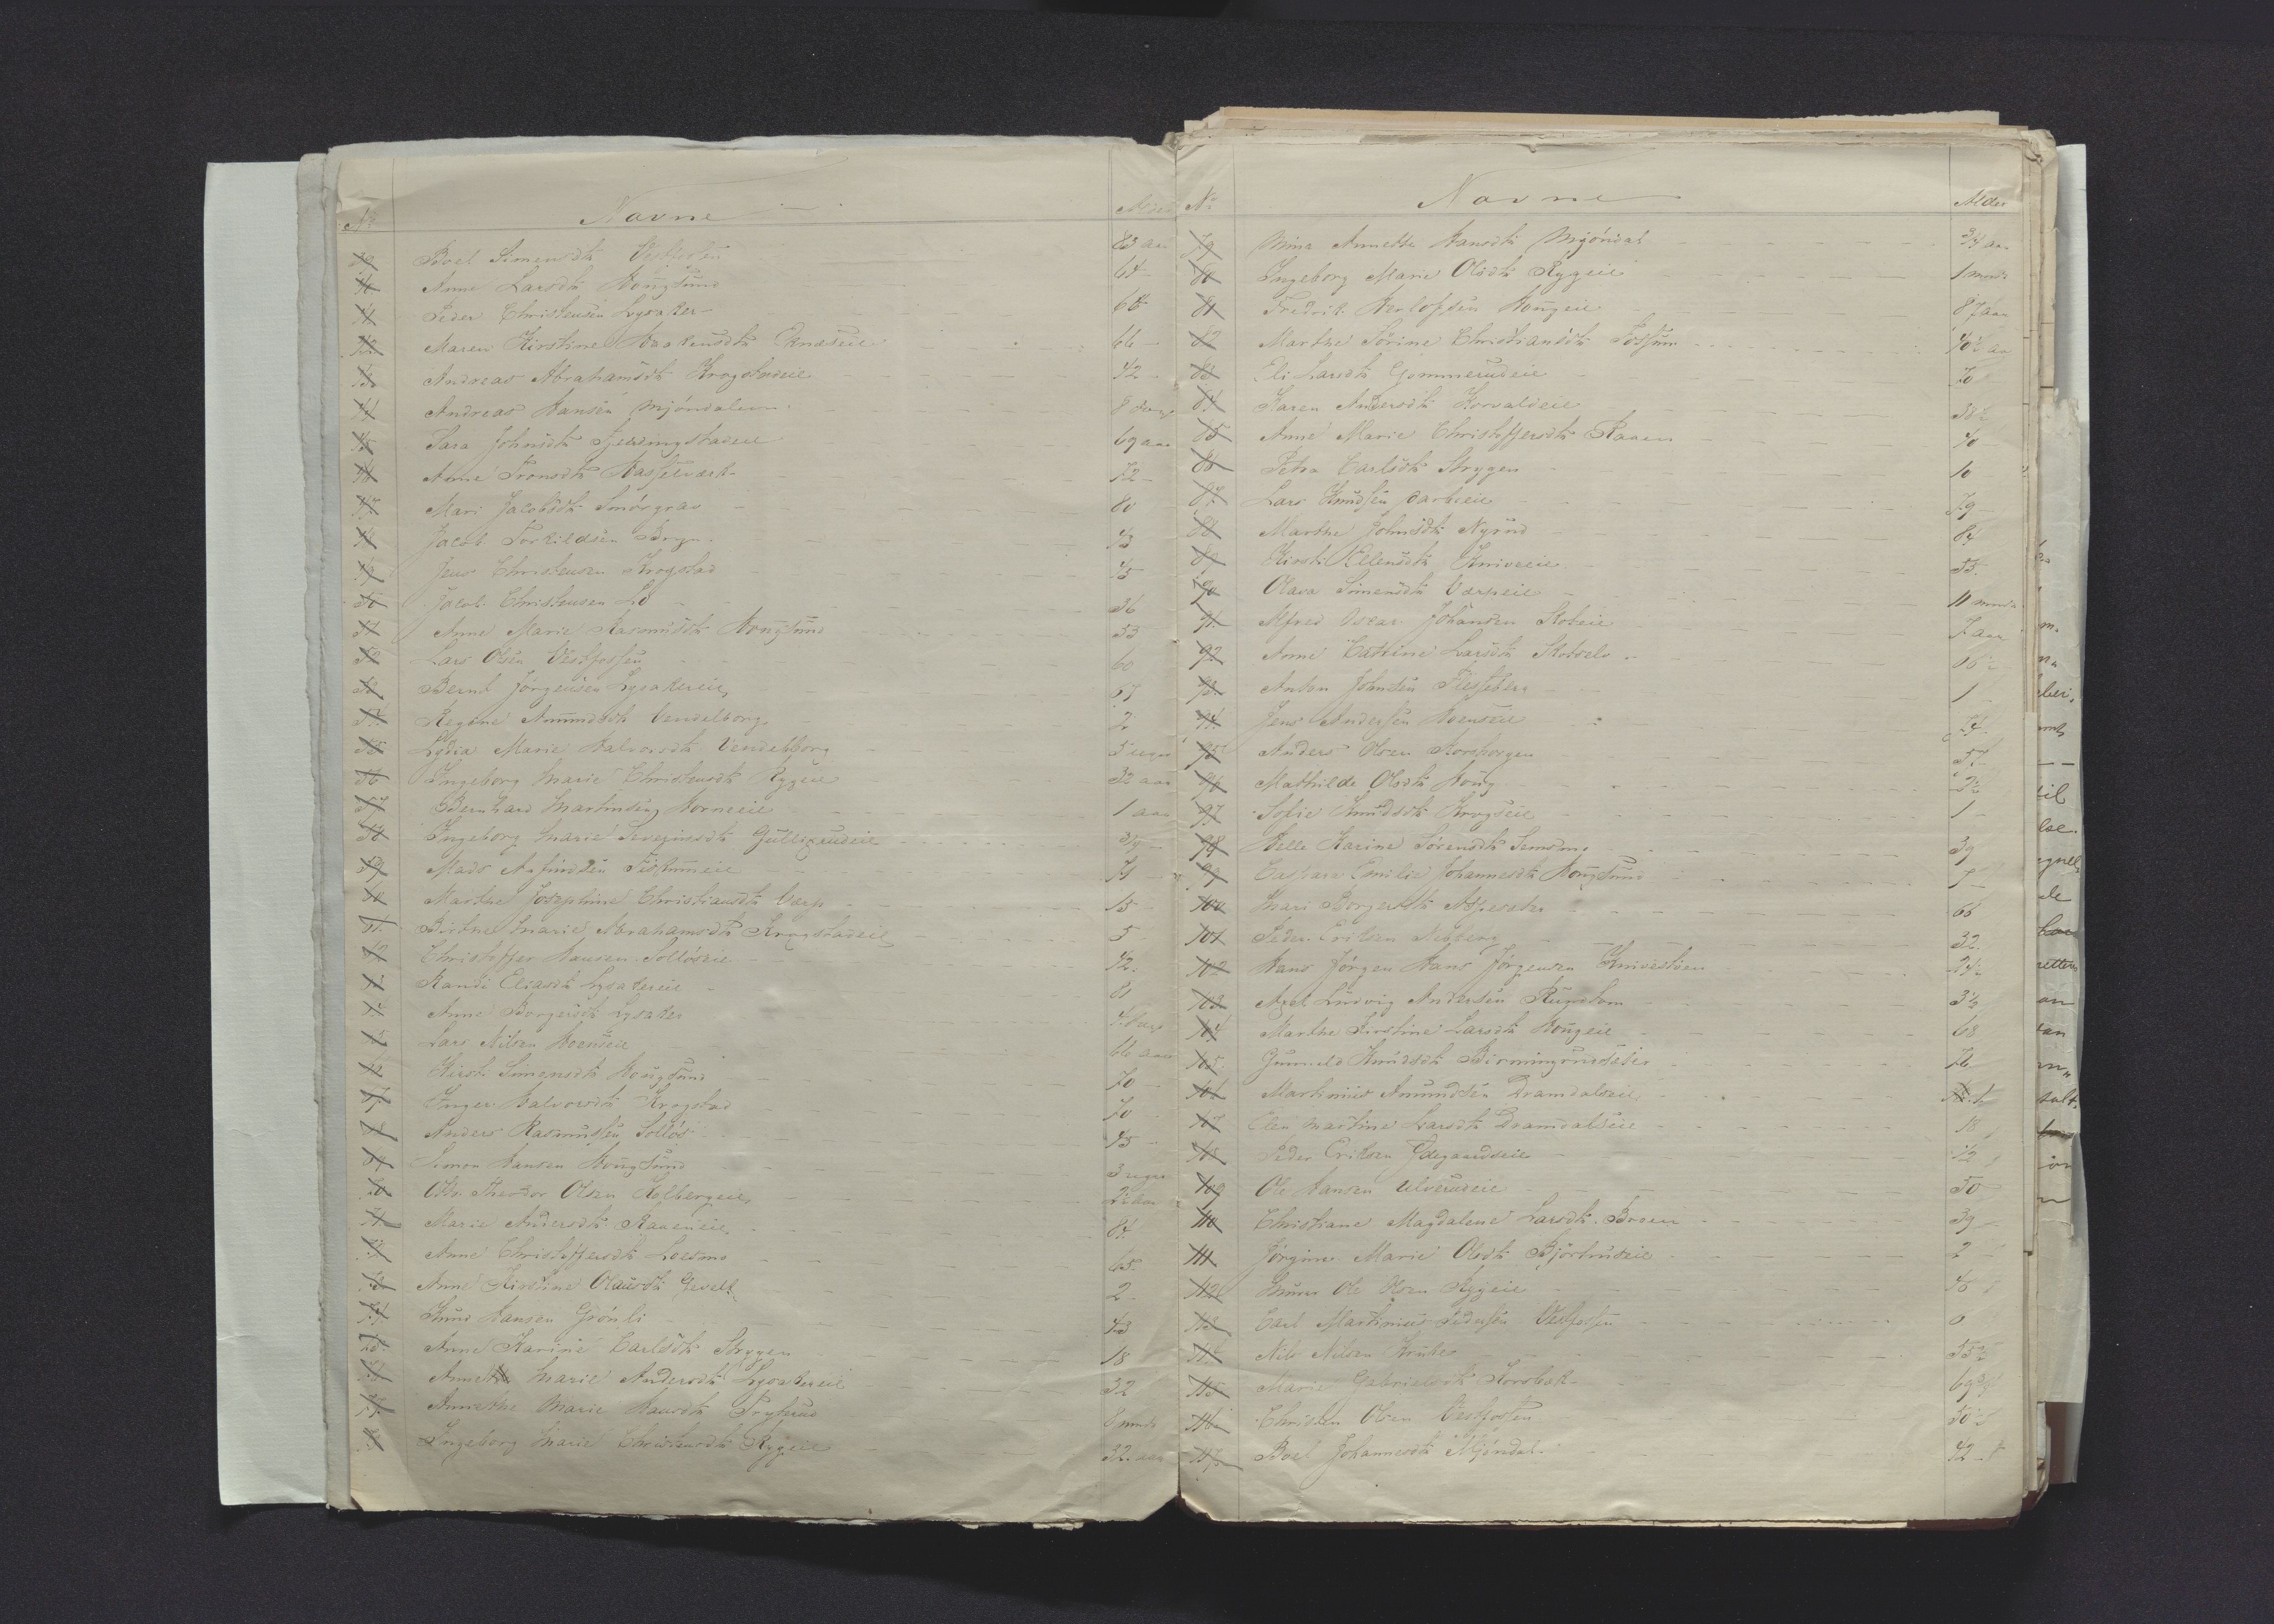 No Navne Alder
39 Boel Simensdtr Vestfossen 83 aar
40 Anne Larsdtr Hougsund 64 -
41 Peder Christensen Lysaker 68
42 Maren Kirstine Haakensdtr 66 -
43 Andreas Abrahamsdtr Krogstadeie 42 -
44 Andreas Hansen Mjöndalen 8 dage
45 Sara Johnsdtr Gjeldingstadeie 69 aar
46 Anne Tronsdtr Hasselværk 72 -
47 Mari Jacobsdtr Smörgrav 80
48 Jacob Torkildsen 43
49 Jens Christensen Krogstad 45
50 Jacob Christensen Lö 36
51 Anne Marie Rasmusdtr Hougsund 53
52 Lars Olsen Vestfossen 60
53 Bernt Jörgensen Lysakereie 67
54 Regine Amundsdtr Vendelborg 2
55 Lydia Marie Halvorsdtr Vendelborg 5 uger
56 Ingeborg Marie Christensdtr Rygeie 32 aar
57 Bernhard Martinsen Horneeie 1 aar
58 Ingeborg Marie Severinsdtr Gulligrudeie 39 -
59 Mads Arfindsen 71
60 Marthe Josephine Christiansdtr Værp 15 -
61 Birthe Marie Abrahamsdtr Krogstadeie 5 -
62 Christoffer Hansen Sollöseie 42.
63 Randi Eliasdtr Lysakereie 81
64 Anne Borgersdtr Lysaker
65 Lars Nilsen Hoenseie 66 aar
66 Kirsti Simensdtr Hougsund 70 -
67 Inger Halvorsdtr Krogstad 70
68 Anders Rasmussen Sollös 45 -
69 Simon Hansen Hougsund 3 uger
70 Otto Theodor Olsen Kolbergeie
71 Marie Andersdtr Raaeneie 84
72 Anne Christoffersdtr Loesmo 65
73 Anne Kirstine Olausdtr 2 -
74 Knud Hansen Grönli 43
75 Anne Karine Carlsdtr Strygen 18
76 Anne Marie Andersdtr Lysakereie 32
77 Annethe Marie Hansdtr 8 mndr
78 Ingeborg Marie Christensdtr Rygeie 32 aar
No Navne Alder
79 Mina Annette Hansdtr Mjöndal 3/4 aar
80 Ingeborg Marie Olsdtr Rygeie 1 mnd
81 Fredrik Herlofsen Hougeie 87 aar
82 Marthe Sörine Christiansdtr Fossum
83 Eli Larsdtr Gommerudeie 70
84 Karen Andersdtr Horvaldeie
85 Anne Marie Christoffersdtr Raaen 40
86 Petra Carlsdtr Strygen 10
87 Lars Knudsen 79
88 Marthe Johnsdtr Nyrud 84
89 Kirsti Ellensdtr Kniveeie 55
90 Olava Simensdtr Værpeie 11 mndr
91 Alfred Oscar Johansen Skoteie 7 aar
92 Anne Cathrine Larsdtr Skotselv
93 Anton Johnsen Flesseberg 1
94 Jens Andersen Hoenseie 74 -
95 Anders Olsen Korsborgen 57
96 Mathilde Olsdtr Houg 2 1/2
97 Sofie Knudsdtr Krogseie 1 -
98 Helle Karine Sörensdtr Semsmo 39
99 Caspara Emilie Johannesdtr Hougsund 7 -
100 Mari Borgersdtr Aspesater 66
101 Peder Eriksen Neberg 32.
102 Hans Jörgen Hans Jörgensen Knivestöen
103 Axel Ludvig Andersen Rundtom 3 1/2
104 Marthe Kirstine Larsdtr Hougeie 68
105 Gunnild Knudsdtr 76
106 Martinius Amundsen Dramdalseie 1
107 Elen Martine Larsdtr Dramdalseie 18
108 Peder Eriksen Ödegaardseie
109 Ole Hansen Ulverudeie 50
110 Christiane Magdalene Larsdtr Broen 39 -
111 Jörgine Marie Olsdtr Björkerudeie 2
112 Gunner Ole Olsen Rygeie
113 Carl Martinius Pedersen Vestfossen 0
114 Nils Nilsen
115 Marie Gabrielsdtr Horsbak
116 Christen Olsen Vestfossen
117 Boel Johannesdtr Mjöndal 42